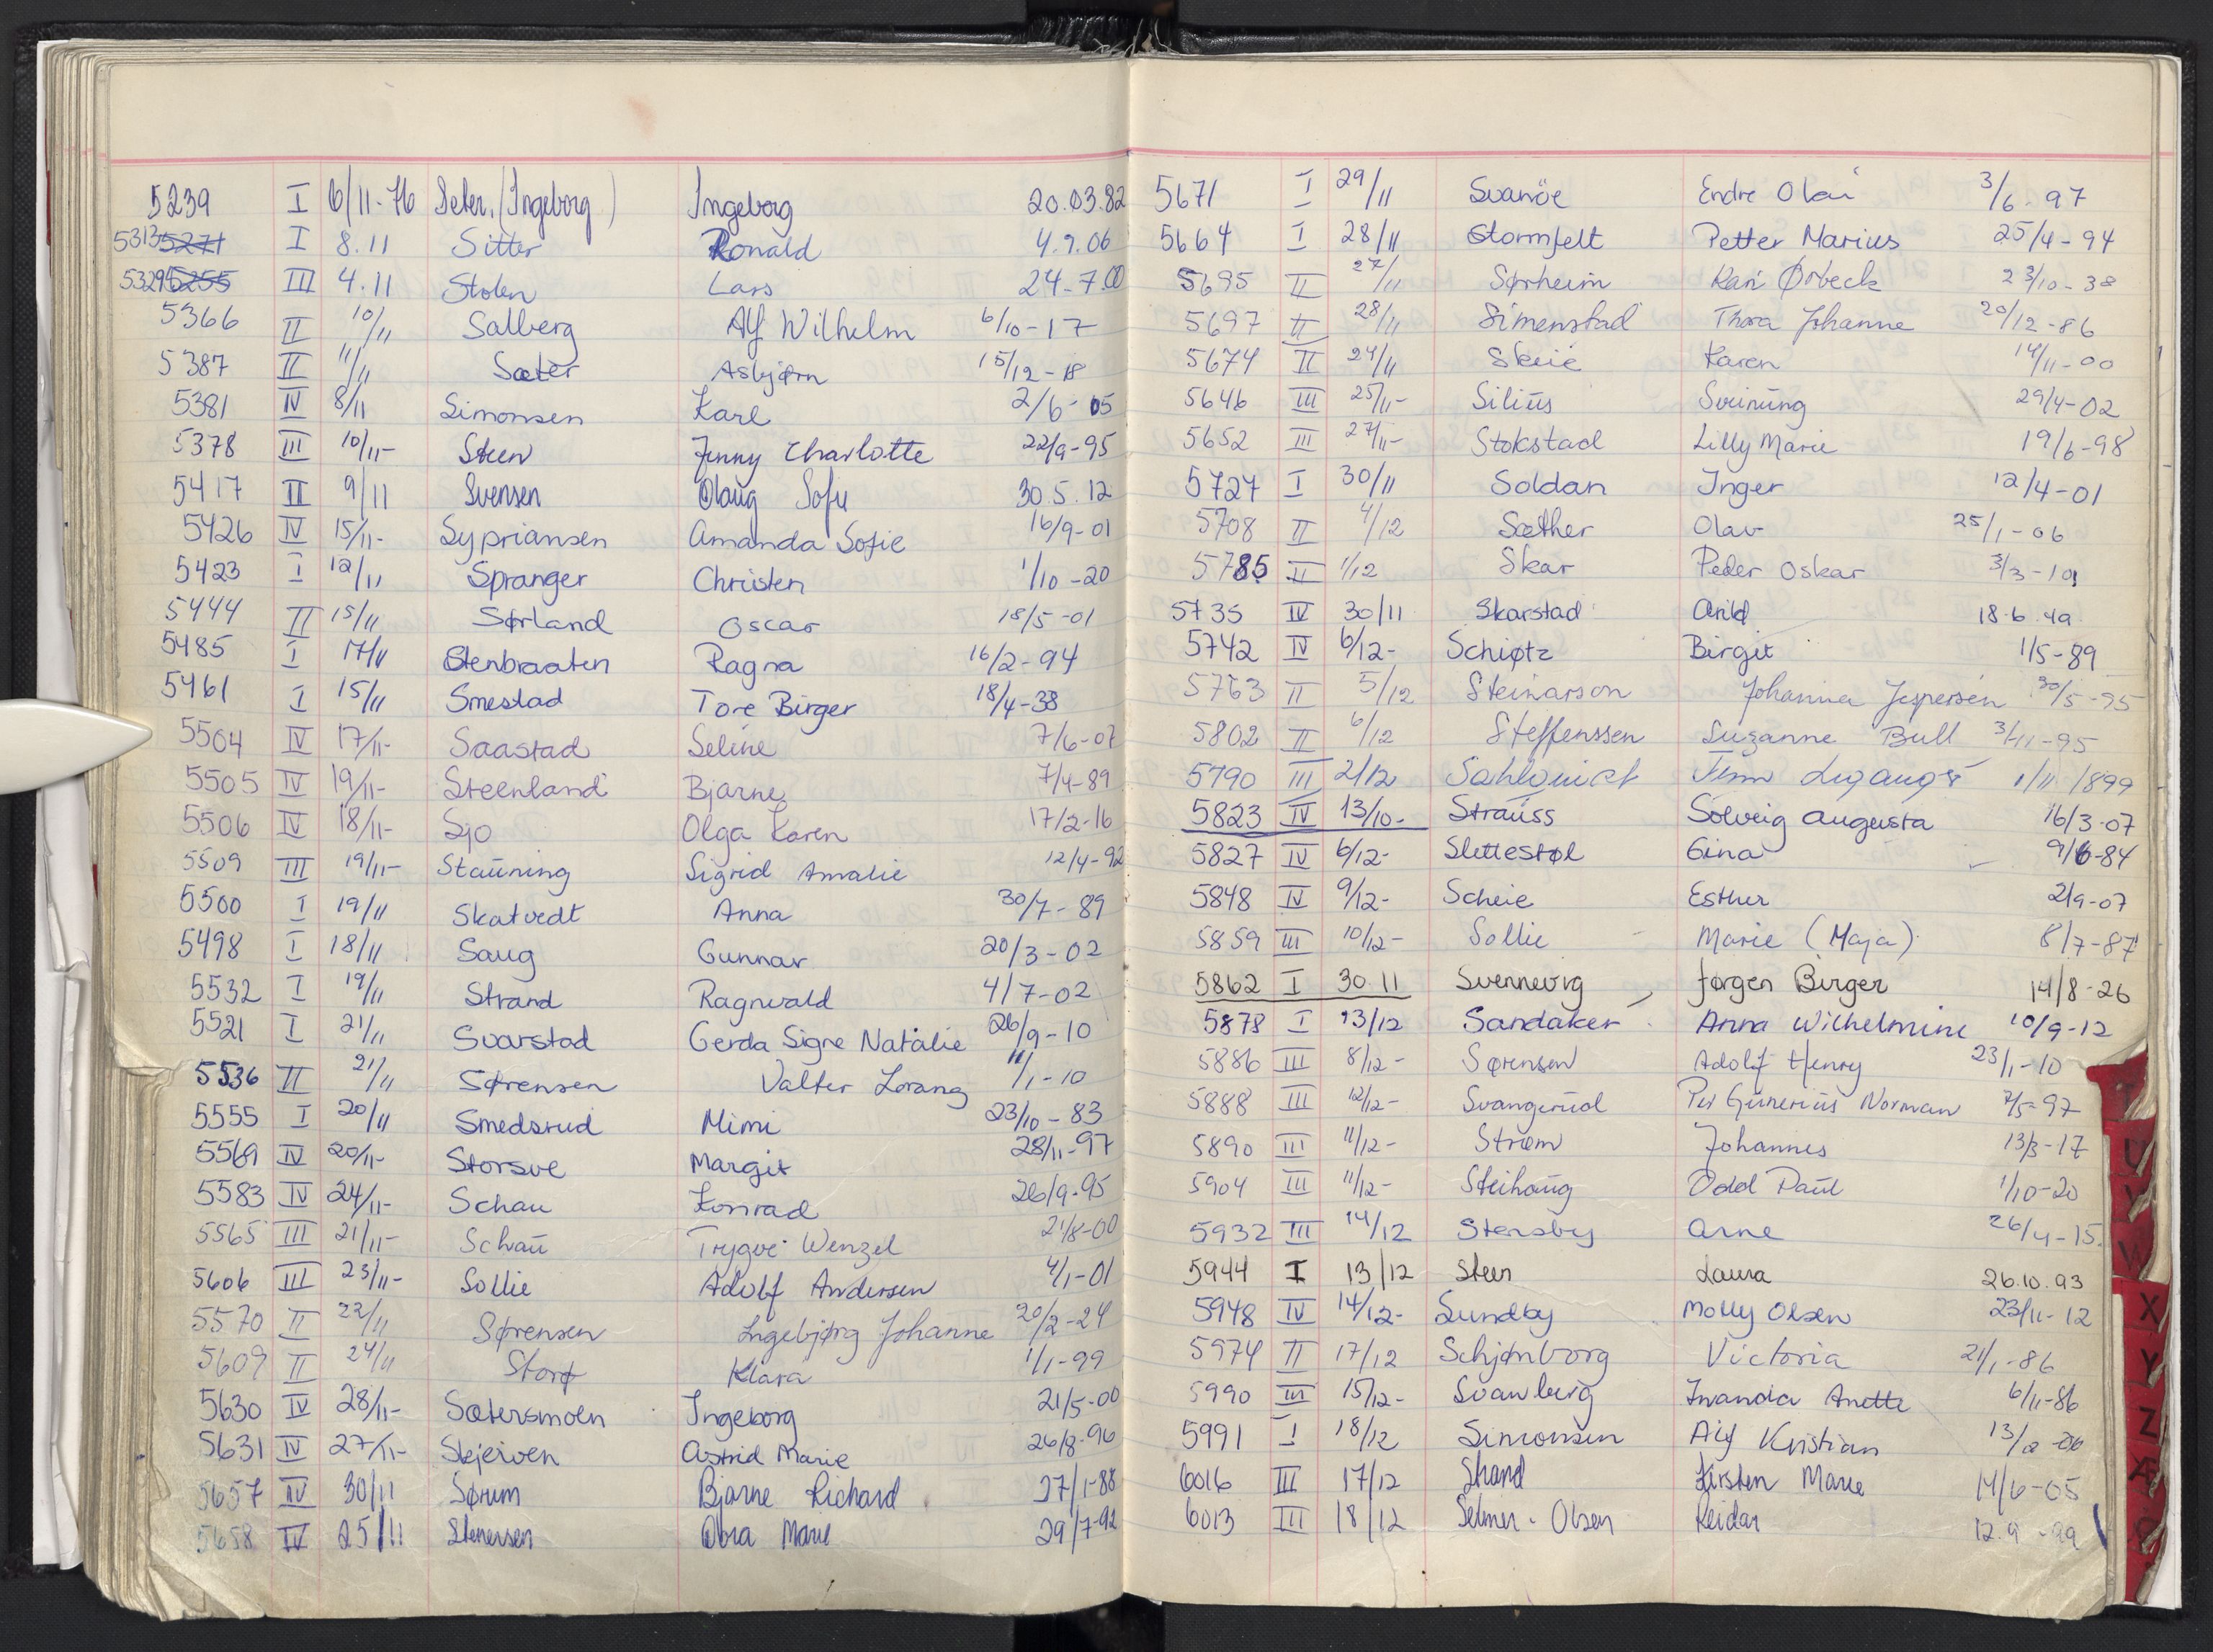 5239 I 6/11-76 Seter, (Ingeborg) Ingeborg 20.03.82
5313 5271 I 8.11 Sitter Ronald 4.9.06
5329 5255 III 4.11 Stolen Lars 24-7.00
5366 II 10/11 Salberg Alf Wilhelm 6/10-17
5387 II 11/11 Sæter Asbjørn 15/12-18
5381 IV 8/11 Simonsen Karl 2/6-05
5378 III 10/11- Steen Jenny Charlotte 22/9-95
5417 II 9/11 Svensen Olaug Sofie 30.5.12
5426 IV 15/11- Sypriansen Amanda Sofie 16/9-01
5423 I 12/11 Spranger Christen 1/10-20
5444 II 15/11 Sørland Oscar 18/5-01
5485 I 17/11 Stenbraaten Ragna 16/2-94
5461 I 15/11 Smestad Tore Birger 18/4-38
5504 IV 17/11- Saastad Seline 7/6-07
5505 IV 19/11- Steenland Bjarne 7/4-89
5506 IV 18/11- Sjo Olga Karen 17/2-16
5509 III 19/11- Stauning Sigrid Amalie 12/4-92
5500 I 19/11 Skatvedt Anna 30/7-89
5498 I 18/11 Saug Gunnar 20/3-02
5532 I 19/11 Strand Ragnvald 4/7-02
5521 I 21/11 Svarstad Gerda Signe Natalie 26/9-10
5536 II 21/11 Sørensen Valter Lorang 11/1-10
5555 I 20/11 Smedsrud Mimi 23/10-83
5569 IV 20/11- Storsve Margit 28/11-97
5583 IV 24/11- Schau Konrad 26/9-95
5565 III 21/11- Schau Trygve Wenzel 21/8-00
5606 III 23/11- Sollie Adolf Andersen 4/1-01
5570 II 22/11 Sørensen Ingebjørg Johanne 20/2-24
5609 II 24/11 Storø Klara 1/1-99
5630 IV 28/11- Sætersmoen Ingeborg 21/5-00
5631 IV 27/11- Skjerven Astrid Marie 26/8-96
5657 IV 30/11 Sørum Bjarne Richard 27/1-88
5658 IV 25/11 Stenersen Dora Marie 29/7-92
5671 I 29/11 Svanöe Endre Olai 3/6-97
5664 I 28/11 Stormfelt Petter Marius 25/4-94
5695 II 27/11 Sørheim Kari Ørbeck 23/10-38
5697 II 28/11 Simenstad Thora Johanne 20/12-86
5674 II 24/11 Skeie Karen 14/11-00
5646 III 25/11- Silius Sveinung 29/4-02
5652 III 27/11- Stokstad Lilly Marie 19/6-98
5727 I 30/11 Soldan Inger 12/4-01
5708 II 4/12 Sæther Olav 25/1-06
5785 II 1/12 Skar Peder Oskar 3/3-10
5735 IV 30/11 Skarstad Arild 18.6.49
5742 IV 6/12- Schiøtz Birgit 1/5-89
5763 II 5/12 Steinarson Johanna Jespersen 30/5-95
5802 II 6/12 Steffenssen Suzanne Bull 3/11-95
5790 III 2/12 Sahlquist 1/11 1899
5823 IV 13/10- Strauss Solveig Augusta 16/3-07
5827 IV 6/12- Slettestøl Gina 9/6-84
5848 IV 9/12- Scheie Esther 2/9-07
5859 III 10/12- Sollie Marie (Maja) 8/7-87
5862 I 30 11 Svennevig Jørgen Birger 14/8-26
5878 I 13/12 Sandaker Anna Wilhelmine 10/9-12
5886 III 8/12- Sørensen Adolf Henry 23/1-10
5888 III 12/12- Svangerud Per Gunerius Norman 7/5-97
5890 III 11/12- Strøm Johannes 13/3-17
5904 III 11/12- Steihaug Odd Paul 1/10-20
5932 III 14/12 Stensby Arne 26/4-15.
5944 I 13/12 Steen Laura 26.10.93
5948 IV 14/12- Sundby Molly Olsen 23/11-12
5974 II 17/12 Schjønborg Victoria 21/1-86
5990 III 15/12- Svanberg Anette 6/11-86
5991 I 18/12 Simonsen Alf Kristian 13/2-06
6016 III 17/12 Strand Kirsten Marie 14/6-05
6013 III 18/12 Selmer-Olsen Reidar 12.9-99
U
V
W
X
Y
Z
Æ
Ø